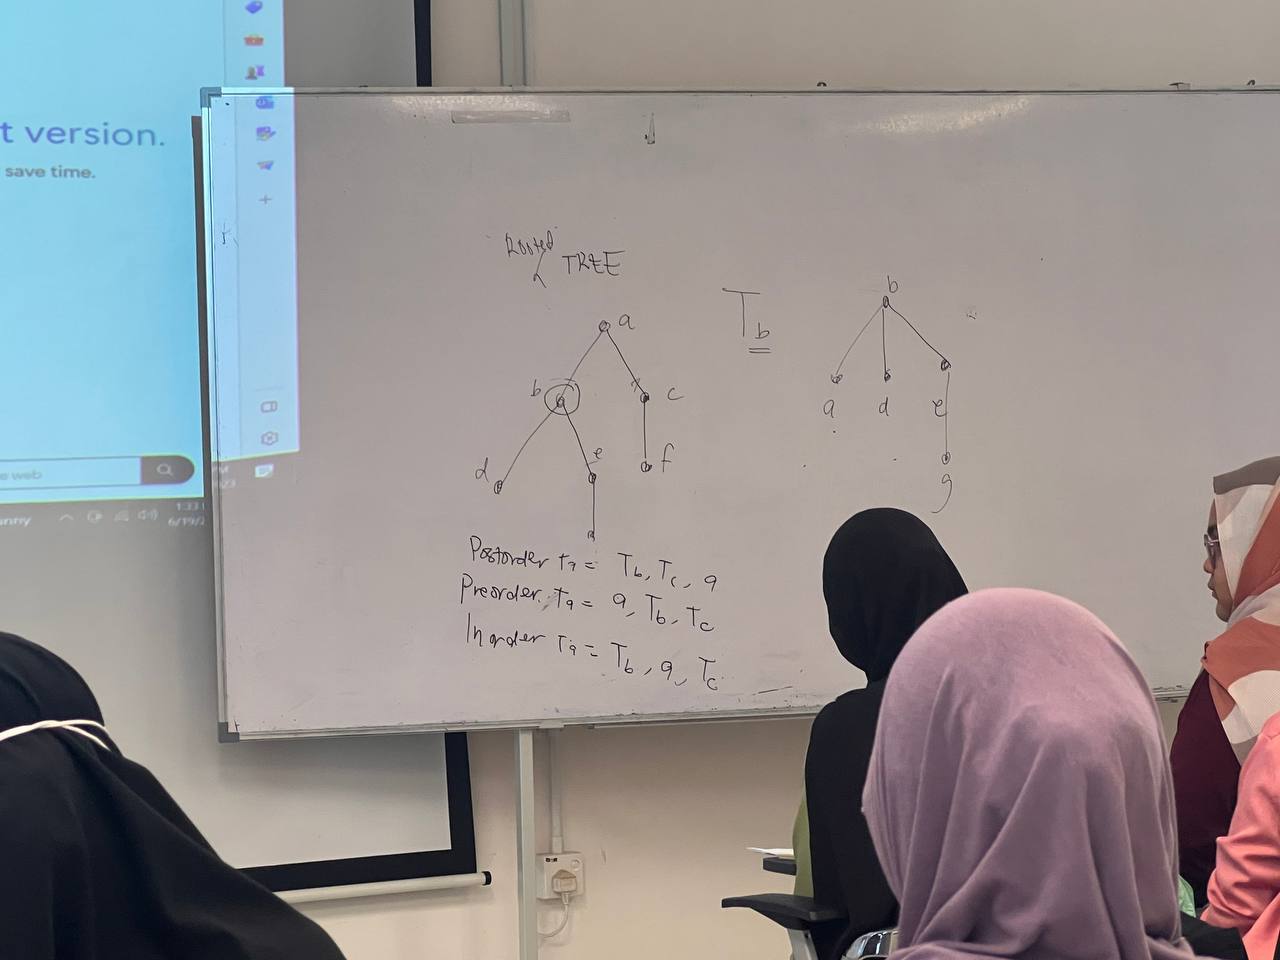 t version.
save time.
e web
nny
1:33
6/19/2
Rooted
TREE
a
b
c
d
e
f
T b
b
a d e
g
Postorder Ta = Tb, Tc, a
Preorder Ta = a, Tb, Tc
Inorder Ta = Tb, a, Tc